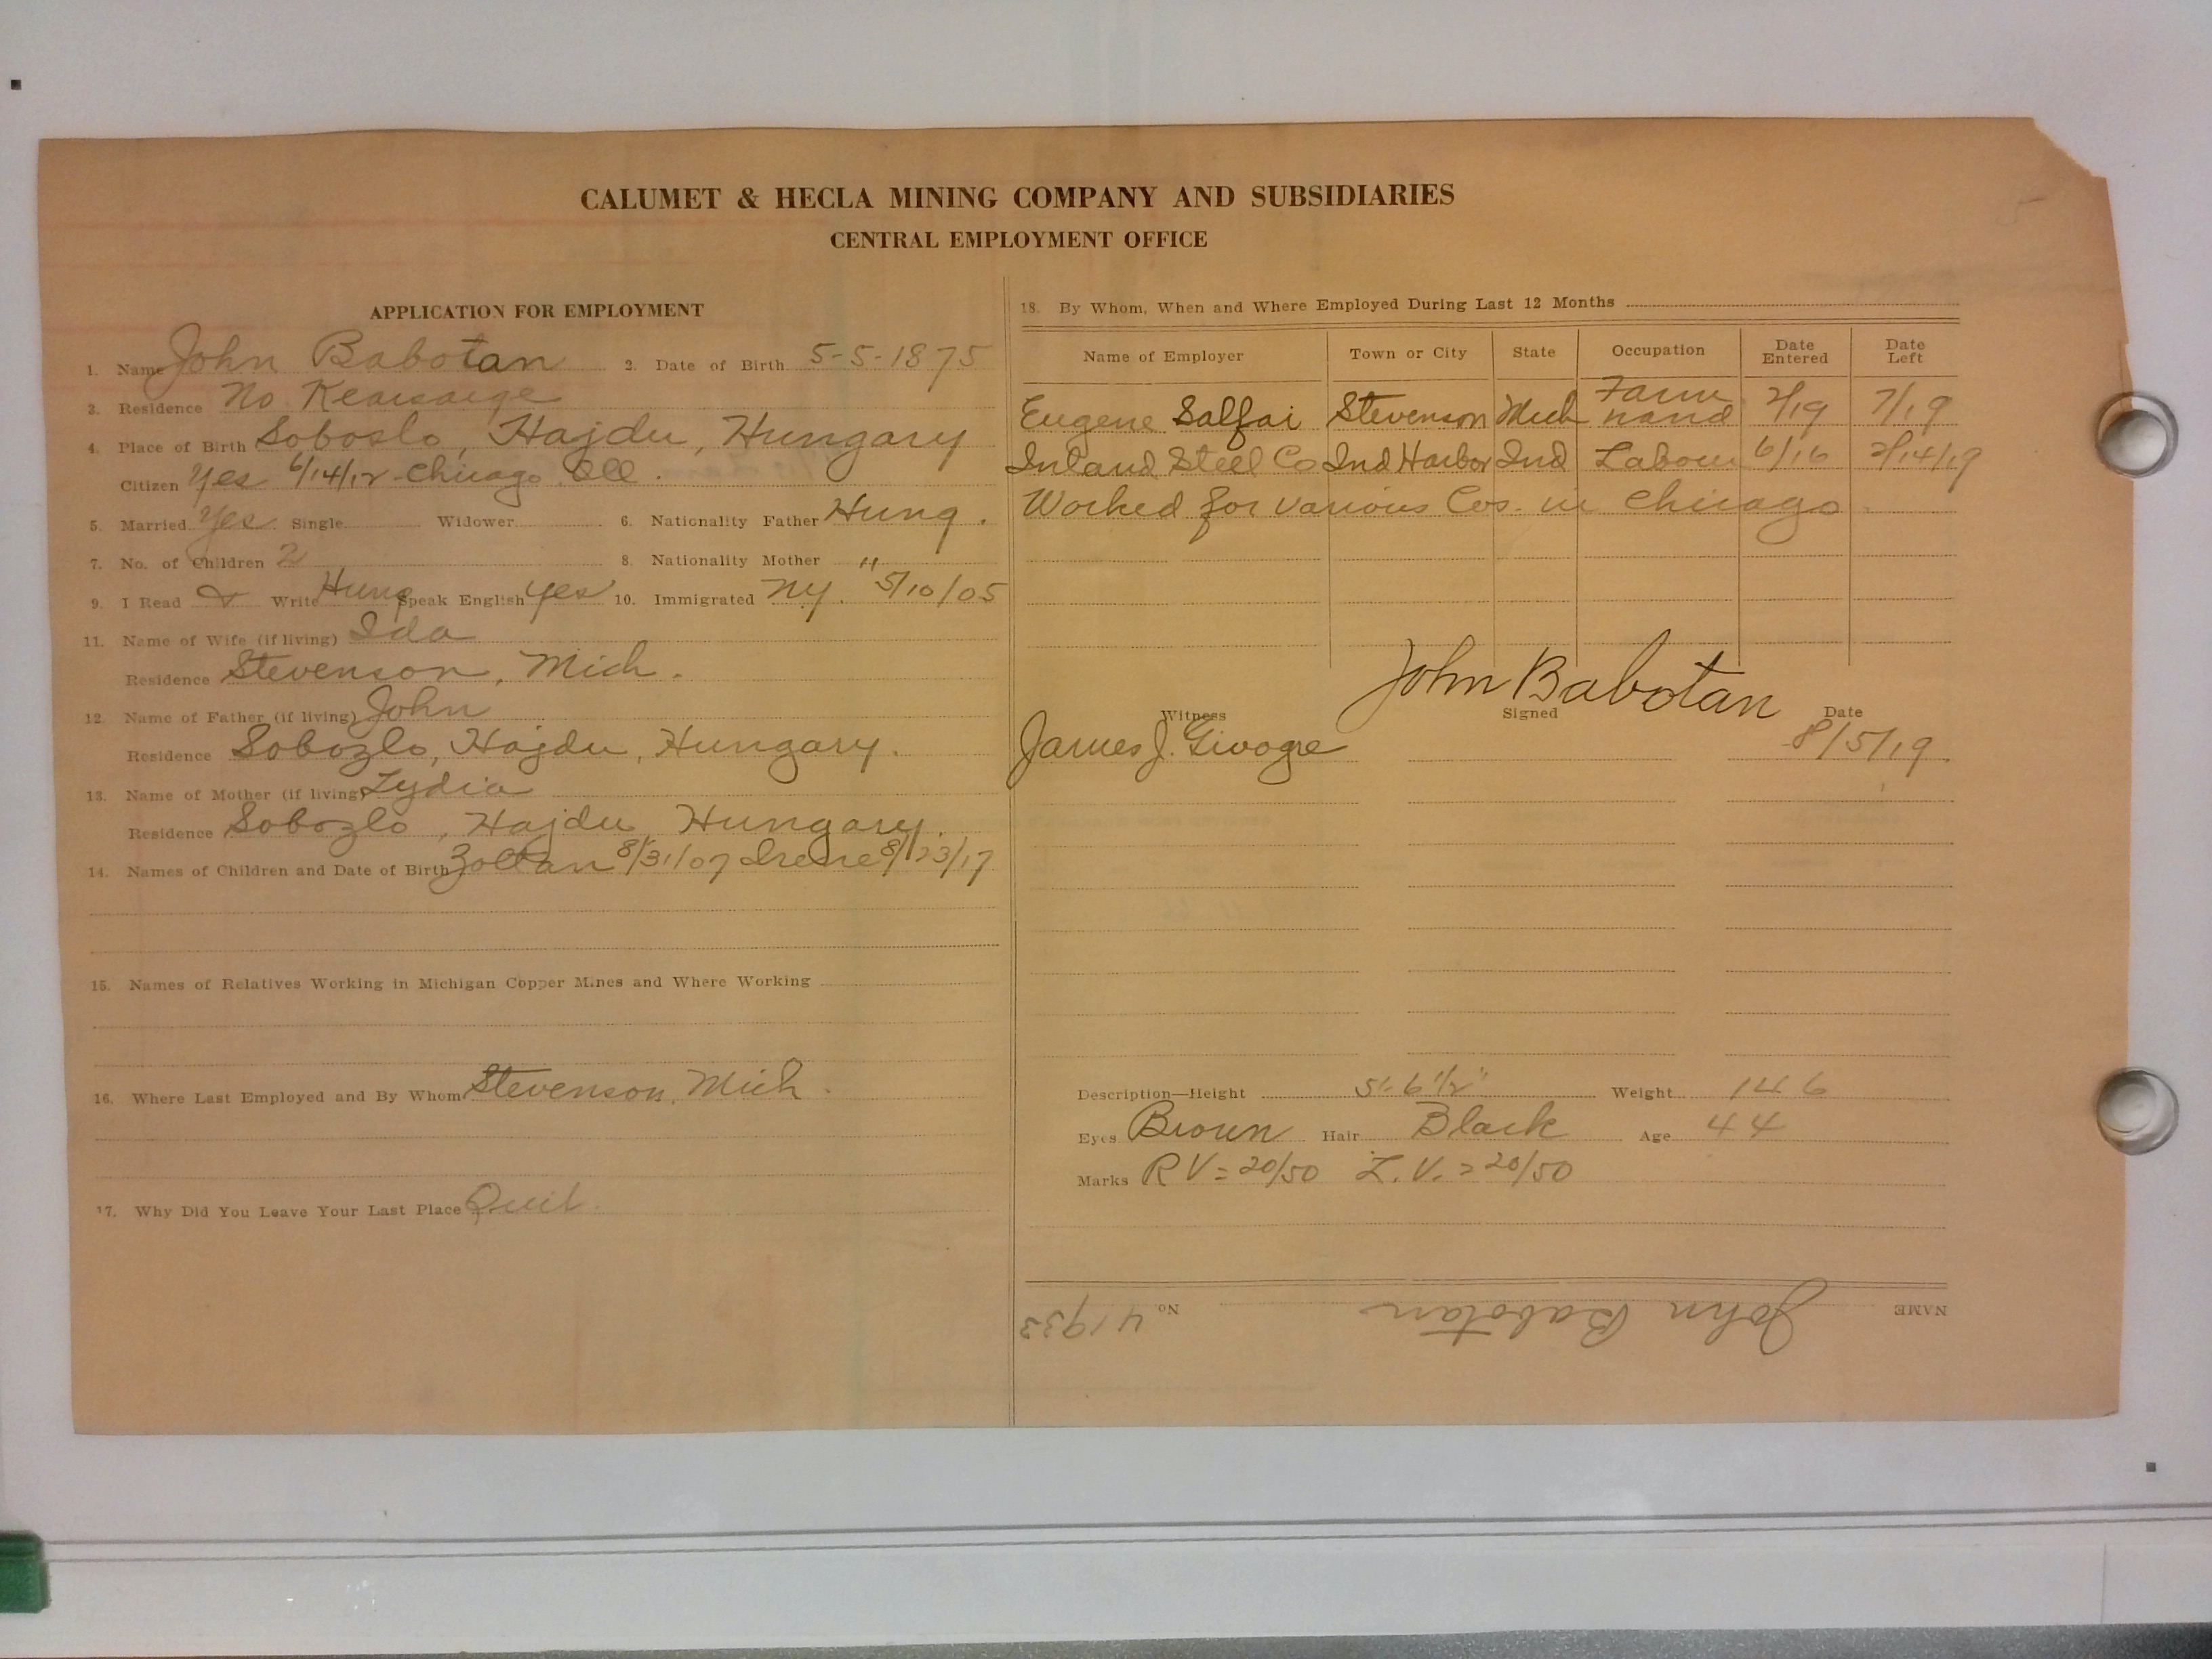 CALUMET & HECLA MINING COMPANY AND SUBSIDIARIES
CENTRAL EMPLOYMENT OFFICE
APPLICATION FOR EMPLOYMENT
1. Name John Babotan 2. Date of Birth 5-5-1875
3. Residence No Kearsarge
4. Place of Birth Soboslo, Hajdu, Hungary
Citizen Yes 6/14/12 - Chicago Ill.
5. Married Yes Single Widower 6. Nationality Father Hung.
7. No. of Children 2 8. Nationality Mother "
9. I Read & Write Hung Speak English Yes 10. Immigrated NY. 5/10/05
11. Name of Wife (if living) Ida
Residence Stevenson, Mich.
12. Name of Father (if living) John
Residence Sobozlo, Hajdu, Hungary.
13. Name of Mother (if living) Lydia
Residence Sobozlo, Hajdu, Hungary.
14. Names of Children and Date of Birth Zoltan 8/31/07 Irene 8/23/17
15. Names of Relatives Working in Michigan Copper Mines and Where Working
16. Where Last Employed and By Whom Stevenson, Mich.
17. Why Did You Leave Your Last Place Quit.
18. By Whom, When and Where Employed During Last 12 Months
Name of Employer Town or City State Occupation Date Entered Date Left
Eugene Salfai Stevenson Mich Farm hand 2/19 7/19
Inland Steel Co Ind Harbor Ind Labour 6/16 2/14/19
Worked for various Cos. in Chicago.
John Babotan
Witness Signed Date
James J. 8/5/19.
Description—Height 5'-6 1/2" Weight 146
Eyes Brown Hair Black Age 44
Marks R V = 20/50 L. V. = 20/50
NAME John Babotan No. 41933